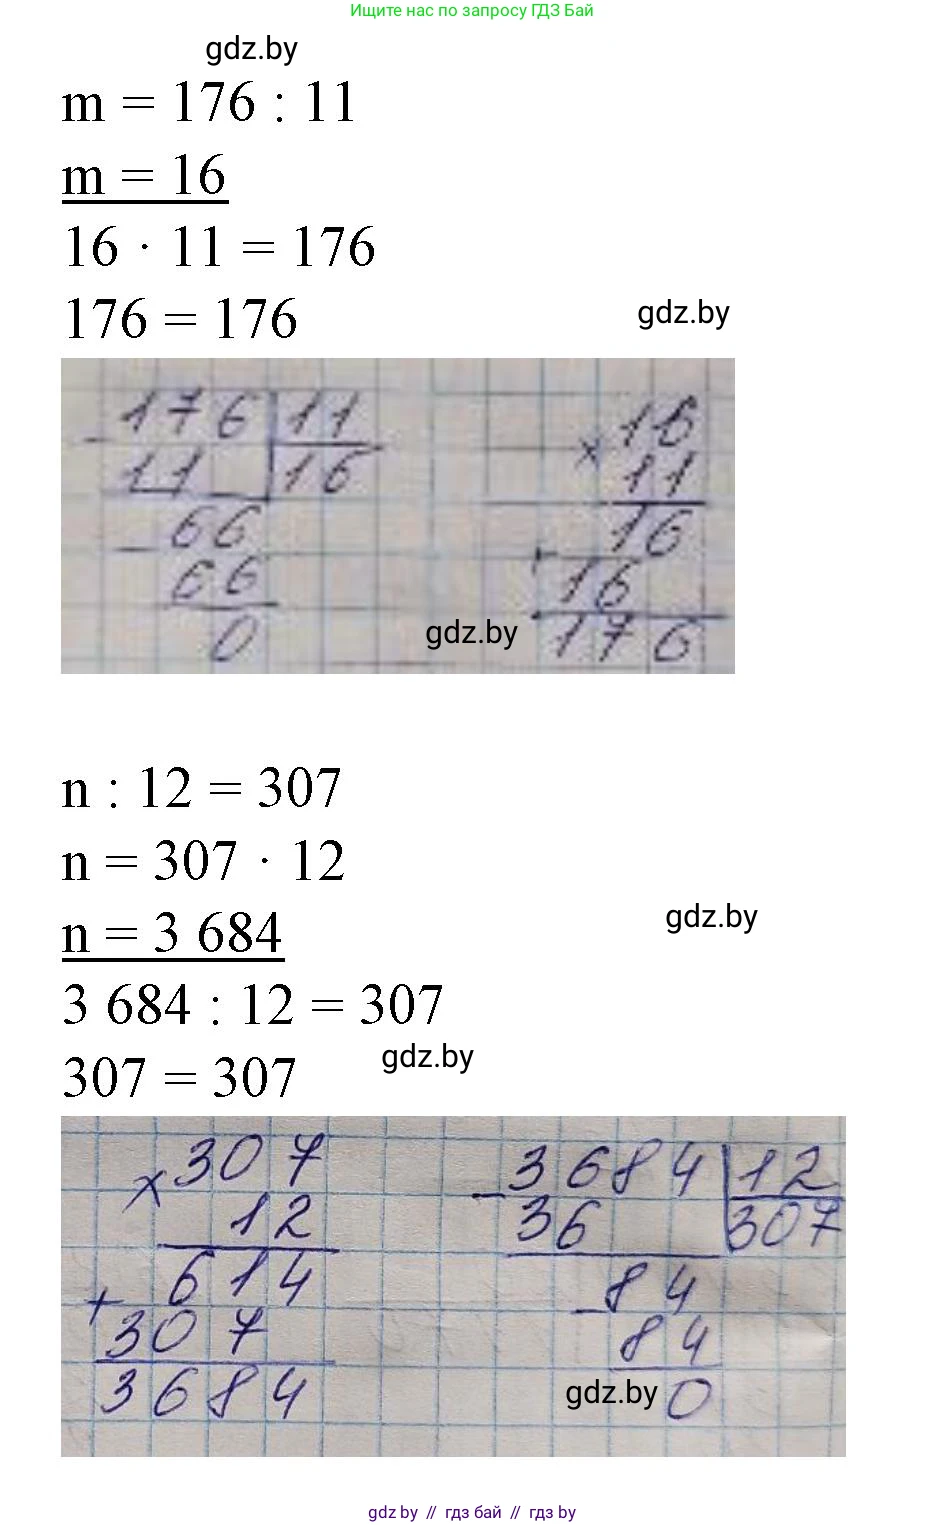 Ищите нас по запросу ГДЗ Бай
gdz.by
m = 176 : 11
m = 16
16 · 11 = 176
176 = 176
gdz.by
- 176 | 11
11 | 16
- 66
66
0
x 16
11
16
+ 16
176
gdz.by
n : 12 = 307
n = 307 · 12
n = 3 684
gdz.by
3 684 : 12 = 307
307 = 307
gdz.by
x 307
12
614
+ 307
3684
- 3684 | 12
36 | 307
- 84
84
0
gdz.by
gdz by // гдз бай // гдз by